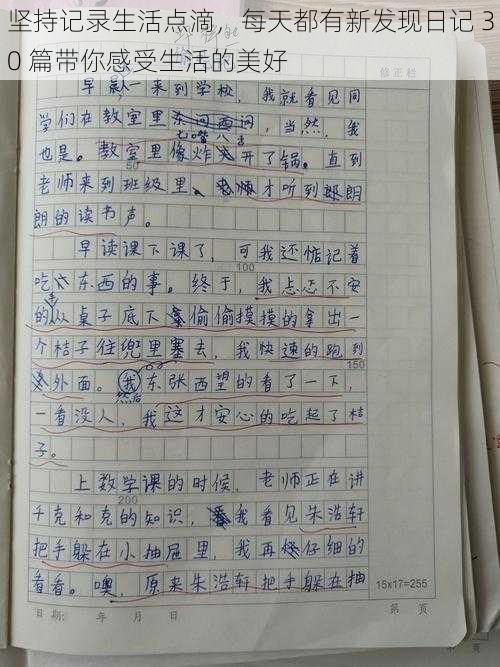 坚持记录生活点滴，每天都有新发现日记 3
0 篇带你感受生活的美好
修正栏
早晨一来到学校，我就看见同
学们在教室里东问西问，当然，我
七嘴八舌
也是。教室里像炸开了锅。直到
50
老师来到班级里、才听到朗
朗的读书声。
早读课下课了，可我还惦记着
100
吃东西的事。终于，我忐忑不安
的从桌子底下偷偷摸摸的拿出一
个桔子往兜里塞去，我快速的跑到
150
外面。我东张西望的看了一下，
然后
一看没人，我这才安心的吃起了桔
子。
上数学课的时候，老师正在讲
200
千克和克的知识，我看见朱浩轩
把手躲在小抽屉里，我再仔细的
看看。噢，原来朱浩轩把手躲在抽
15x17=255
日期： 年 月 日 第 页